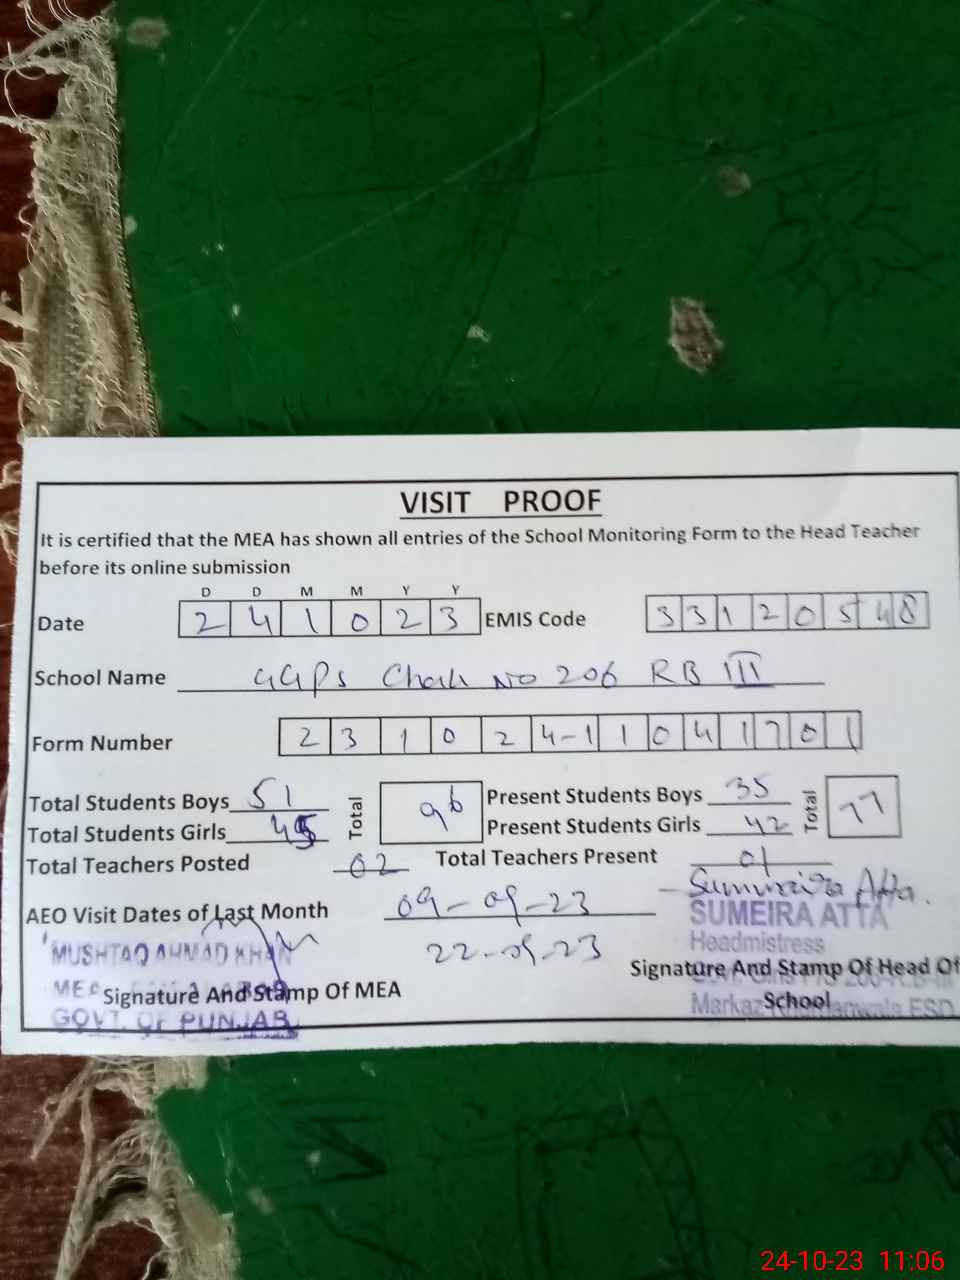 VISIT PROOF
It is certified that the MEA has shown all entries of the School Monitoring Form to the Head Teacher
before its online submission
D D M M Y Y
Date 2 4 1 0 2 3 EMIS Code 3 3 1 2 0 5 4 8
School Name GGPS Chak No 206 RB III
Form Number 2 3 1 0 2 4-1 1 0 4 1 7 0 1
Total Students Boys 51 Total 96 Present Students Boys 35 Total 77
Total Students Girls 45 Present Students Girls 42
Total Teachers Posted 02 Total Teachers Present 01
AEO Visit Dates of Last Month 09-09-23 Sumeira Atta.
22-09-23 SUMEIRA ATTA
MUSHTAQ AHMAD KHAN Headmistress
MEA Signature And Stamp Of MEA Signature And Stamp Of Head Of
GOVT. OF PUNJAB Markaz School FSD
24-10-23 11:06